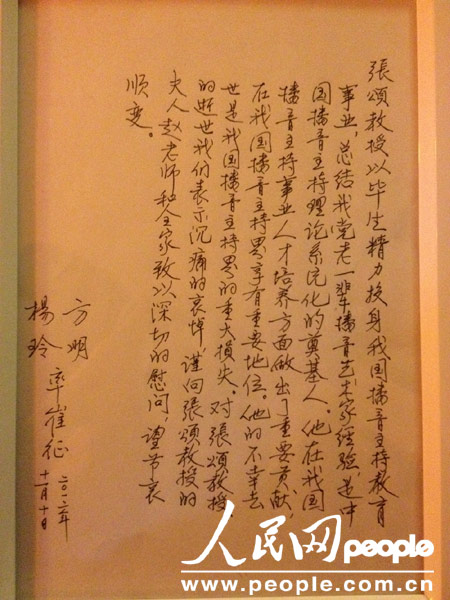 張頌教授以毕生精力投身我国播音主持教育
事业，总结我党老一辈播音艺术家经验，是中
国播音主持理论系统化的奠基人。他在我国
播音主持事业人才培养方面做出了重要贡献，
在我国播音主持界享有重要地位。他的不幸去
世是我国播音主持界的重大损失。对張頌教授
的逝世我们表示沉痛的哀悼，谨向張頌教授的
夫人赵老师和全家致以深切的慰问，望节哀
顺变。
方明
楊玲
率崔征
二〇一二年
十一月十日
人民网 people
www.people.com.cn